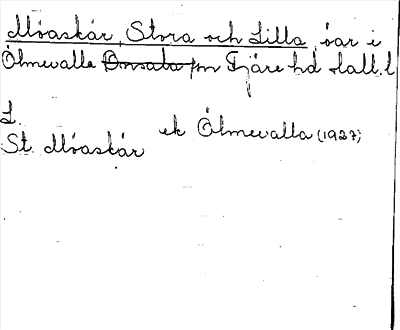 Móaskär, Stora och Lilla, öar i
Ölmevalla Onsala sn Fjäre hd Hall. l
L.
St. Móaskär ek Ölmevalla (1927)